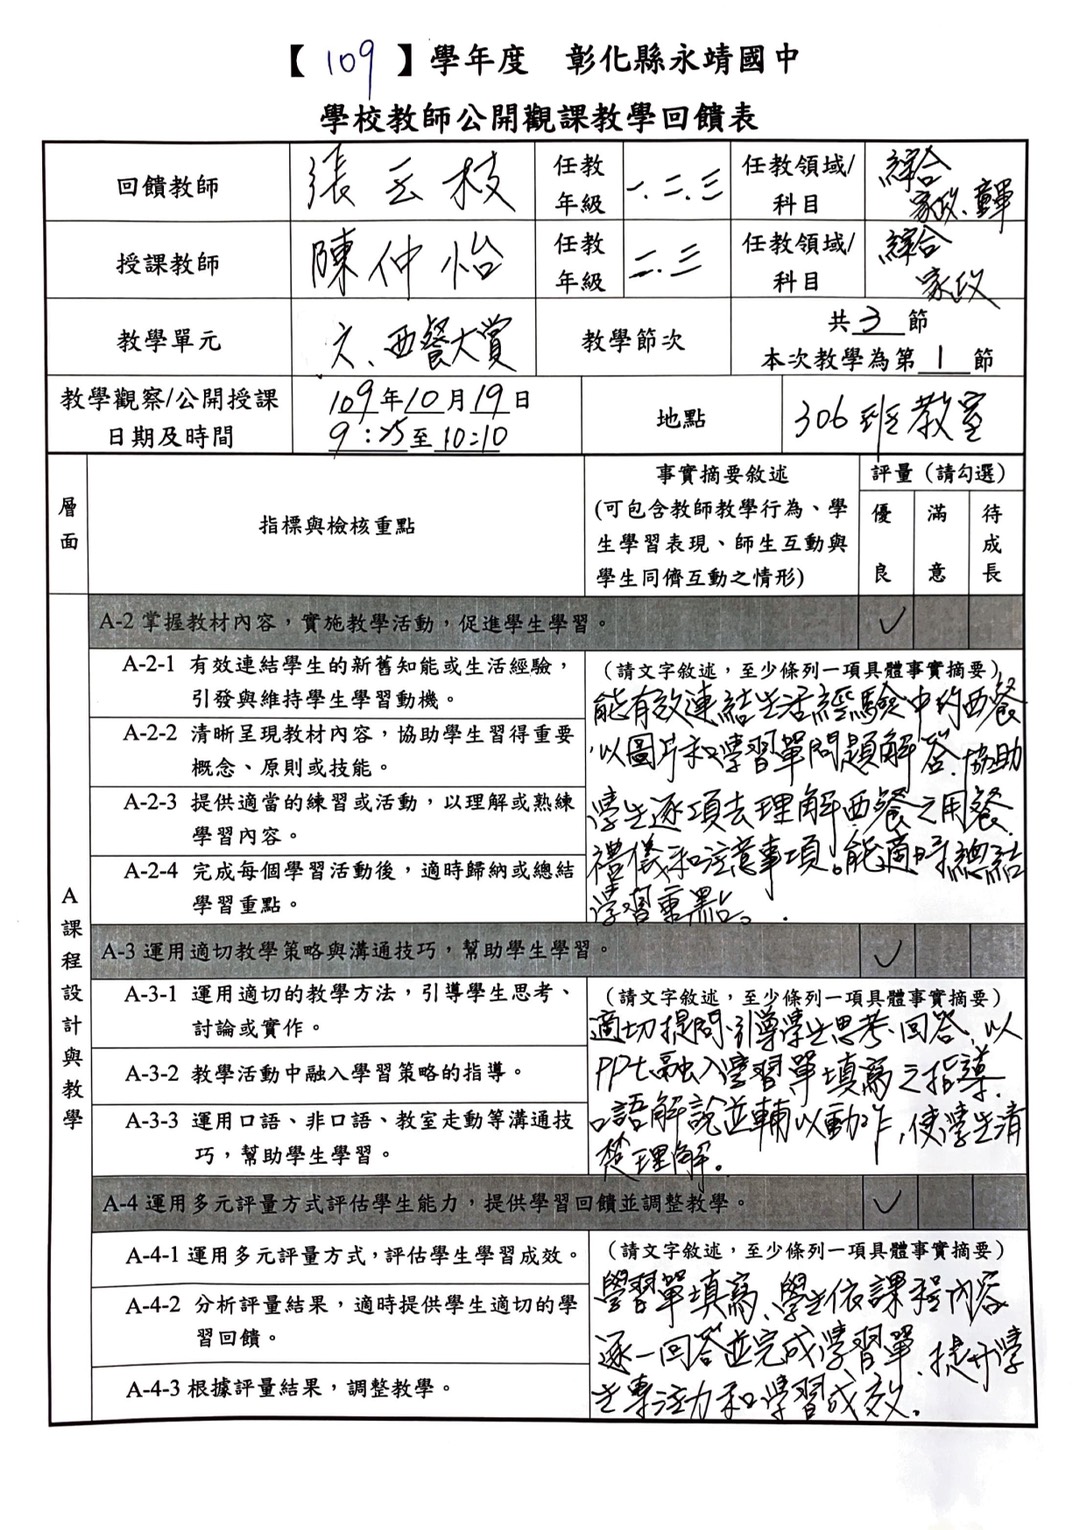 【109】學年度 彰化縣永靖國中
學校教師公開觀課教學回饋表
回饋教師 張玉枝 任教年級 一、二、三 任教領域/科目 綜合 家政、童軍
授課教師 陳仲怡 任教年級 二、三 任教領域/科目 綜合 家政
教學單元 六、西餐大賞 教學節次 共3節
本次教學為第1節
教學觀察/公開授課
日期及時間
109年10月19日
9:25至10:10
地點 306班教室
層面
指標與檢核重點
事實摘要敘述
(可包含教師教學行為、學
生學習表現、師生互動與
學生同儕互動之情形)
評量(請勾選)
優良 滿意 待成長
A 課程設計與教學
A-2 掌握教材內容,實施教學活動,促進學生學習。 ✓
A-2-1 有效連結學生的新舊知能或生活經驗,
引發與維持學生學習動機。
A-2-2 清晰呈現教材內容,協助學生習得重要
概念、原則或技能。
A-2-3 提供適當的練習或活動,以理解或熟練
學習內容。
A-2-4 完成每個學習活動後,適時歸納或總結
學習重點。
(請文字敘述,至少條列一項具體事實摘要)
能有效連結生活經驗中的西餐
以圖片和學習單問題解答、協助
學生逐項去理解西餐之用餐
禮儀和注意事項。能適時總結
學習重點。
A-3 運用適切教學策略與溝通技巧,幫助學生學習。 ✓
A-3-1 運用適切的教學方法,引導學生思考、
討論或實作。
A-3-2 教學活動中融入學習策略的指導。
A-3-3 運用口語、非口語、教室走動等溝通技
巧,幫助學生學習。
(請文字敘述,至少條列一項具體事實摘要)
適切提問、引導學生思考、回答、以
PPt融入學習單填寫之指導、
口語解說並輔以動作,使學生清
楚理解。
A-4 運用多元評量方式評估學生能力,提供學習回饋並調整教學。 ✓
A-4-1 運用多元評量方式,評估學生學習成效。
A-4-2 分析評量結果,適時提供學生適切的學
習回饋。
A-4-3 根據評量結果,調整教學。
(請文字敘述,至少條列一項具體事實摘要)
學習單填寫、學生依課程內容
逐一回答並完成學習單、提升學
生專注力和學習成效。